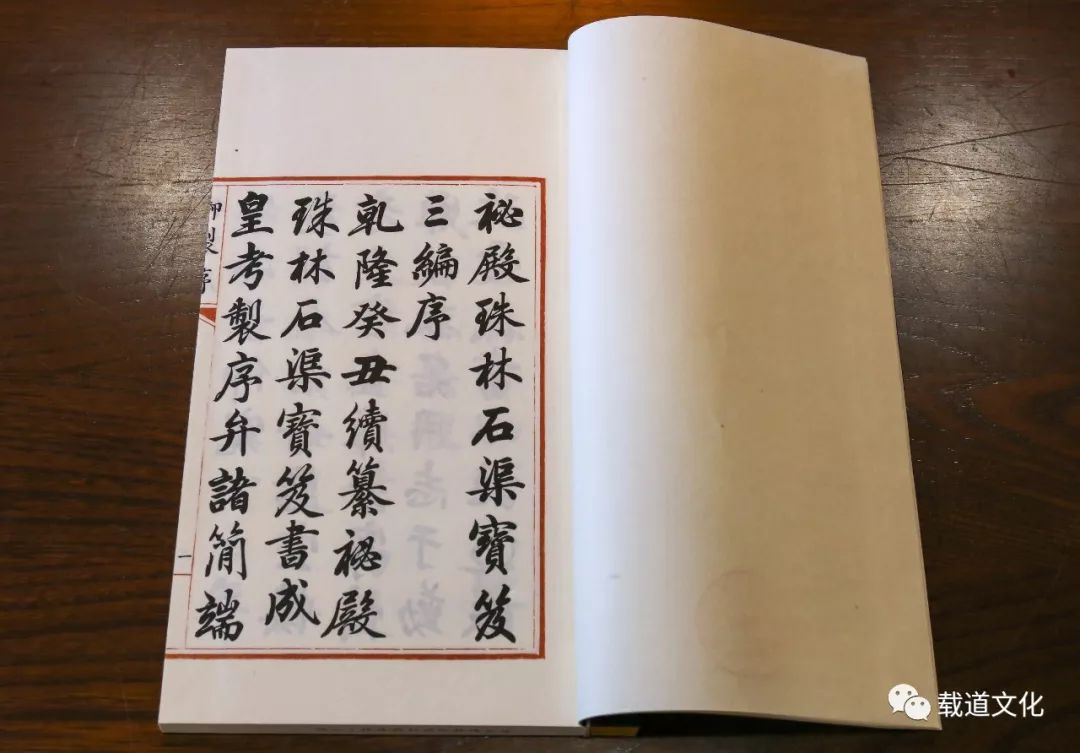 秘殿珠林石渠寶笈
三編序
乾隆癸丑續纂秘殿
珠林石渠寶笈書成
皇考製序弁諸簡端
御製序
一
载道文化